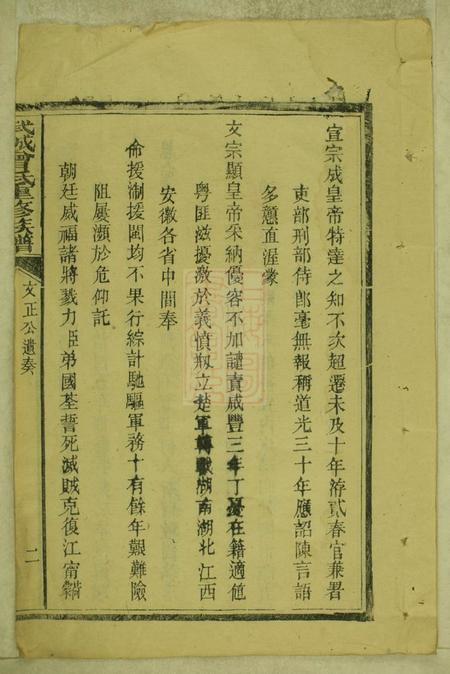 宣宗成皇帝特達之知不次超遷未及十年洊貳春官兼署
吏部刑部侍郎毫無報稱道光三十年應詔陳言語
多戇直渥蒙
文宗顯皇帝采納優容不加譴責咸豐三年丁憂在籍適値
粵匪滋擾激於義憤剏立楚軍轉戰湖南湖北江西
安徽各省中間奉
命援淛援閩均不果行綜計馳驅軍務十有餘年艱難險
阻屢瀕於危仰託
朝廷威福諸將戮力臣弟國荃誓死滅賊克復江甯鍇
武城曾氏重修族譜
文正公遺奏
二